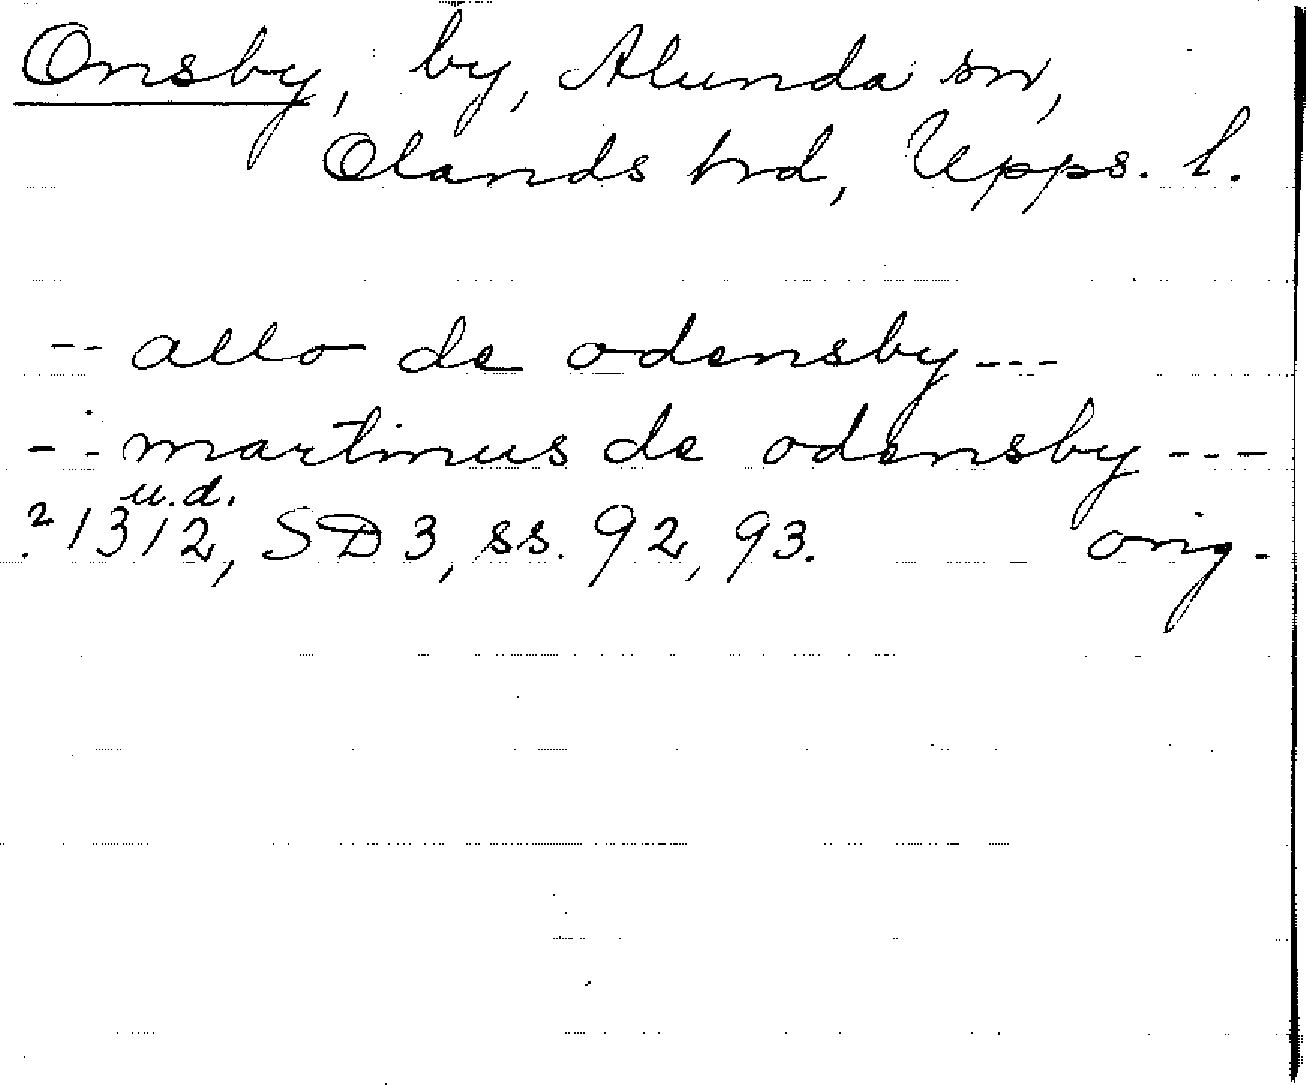 Onsby, by, Alunda sn,
Olands hrd, Upps. l.
-- allo de odensby ---
-- martinus de odensby ---
u.d.
? 1312, SD 3, ss. 92, 93. orig.